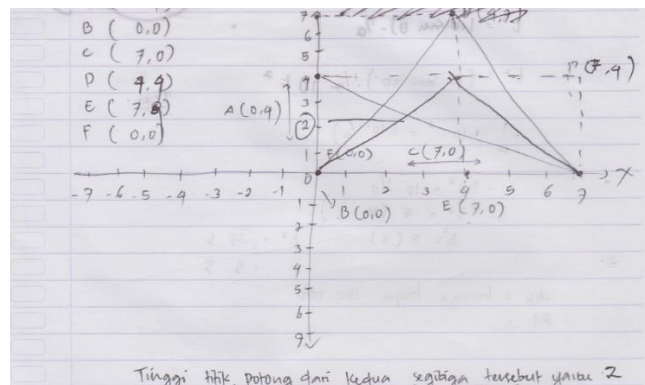 B ( 0,0)
C ( 7,0)
D ( 4,4)
E ( 7,0)
F ( 0,0)
7
6
5
4
3
2
1
0
A (0,4)
F (0,0)
C (7,0)
(7,4)
-7 -6 -5 -4 -3 -2 -1
1 2 3 4 5 6 7
X
B (0,0)
E (7,0)
2
3
4
5
6
7
Tinggi titik potong dari kedua segitiga tersebut yaitu 2